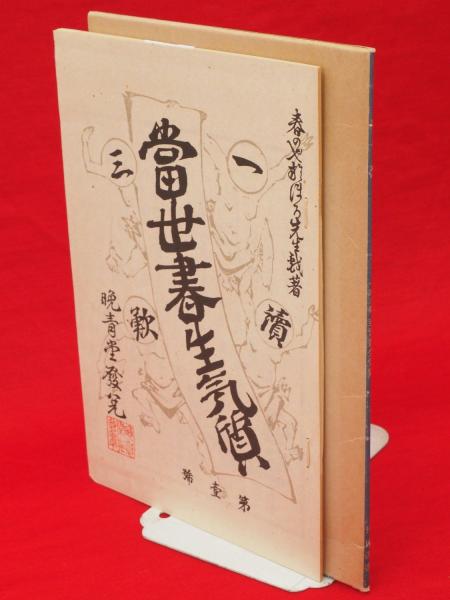 春のやおぼろ先生戯著
一讀
當世書生氣質
三歎
第壹號
晩青堂發兌